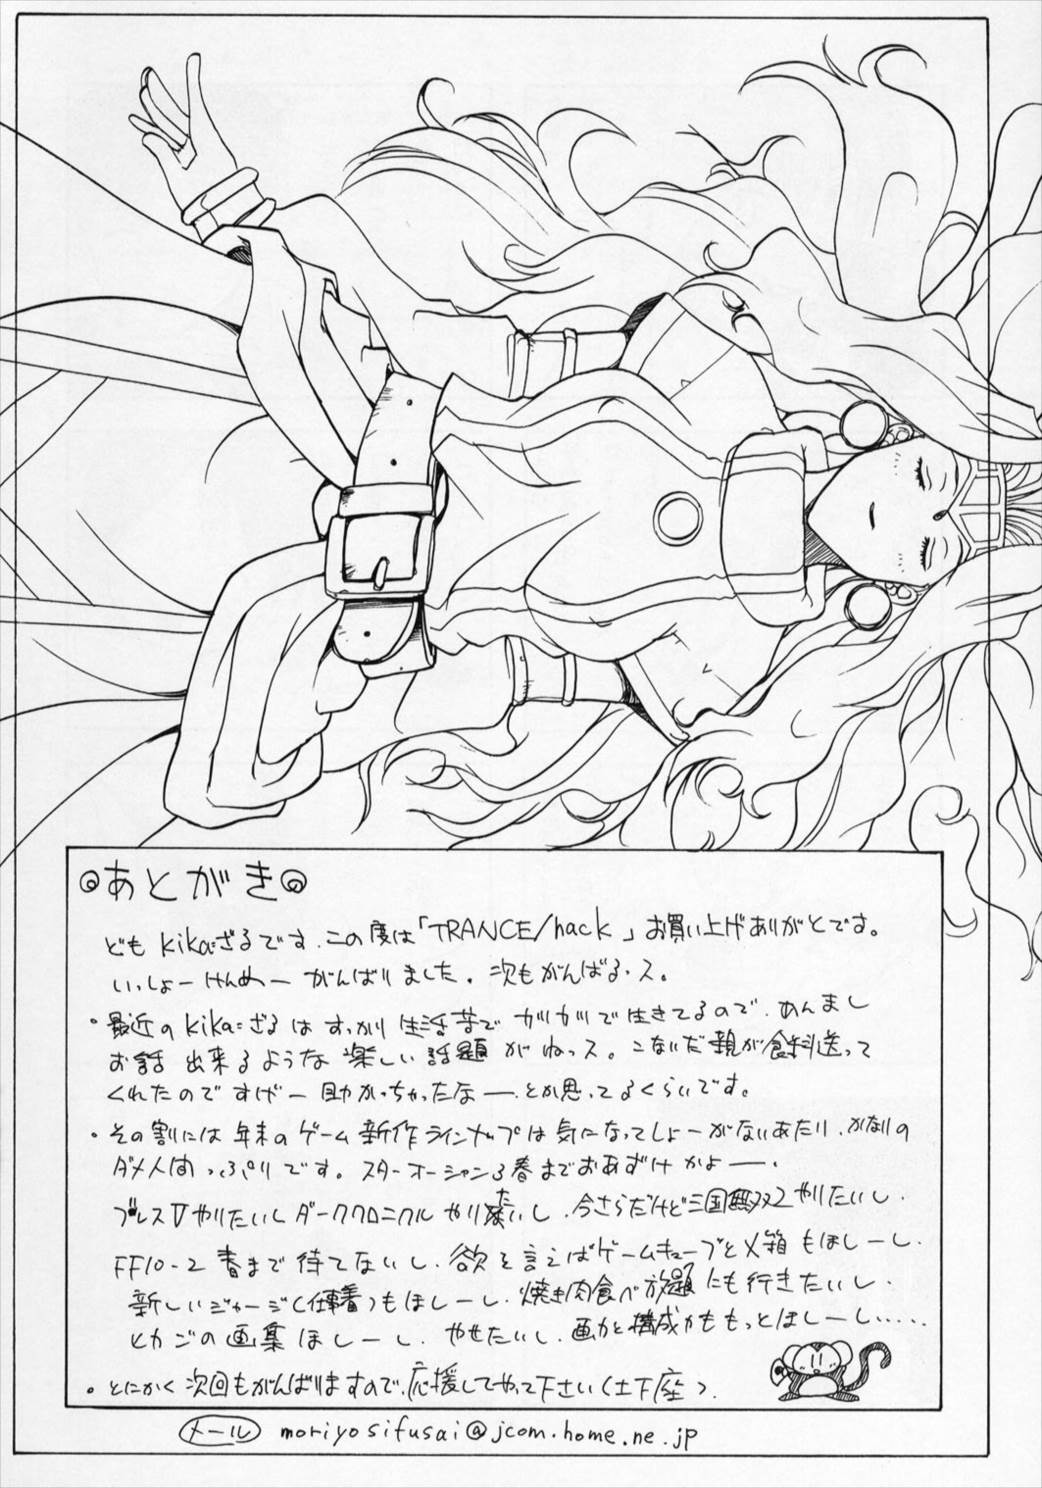 ◎あとがき◎
どもkika=ざるです。この度は「TRANCE/hack」お買い上げありがとです。
いっしょーけんめーがんばりました。次もがんばる.ス。
・最近のkika=ざるはすっかり生活苦でガリガリで生きてるので、あんまし
お話出来るような楽しい話題がねっス。こないだ親が食料送って
くれたのですげー助かっちゃったなー。とか思ってるくらいです。
・その割には年末のゲーム新作ラインナップは気になってしょーがないあたり、かなりの
ダメ人間っぷりです。スターオーシャン3春までおあずけかよー。
ブレスⅤやりたいしダーククロニクルやりたいし、今さらだけど三国無双2やりたいし、
FF10-2春まで待てないし、欲を言えばゲームキューブとX箱もほしーし、
新しいジャージ(仕事着)もほしーし、焼き肉食べ放題にも行きたいし、
ヒカゴの画集ほしーし、やせたいし、画力と構成力ももっとほしーし……
・とにかく次回もがんばりますので、応援してやって下さい(土下座)。
メール moriyosifusai@jcom.home.ne.jp